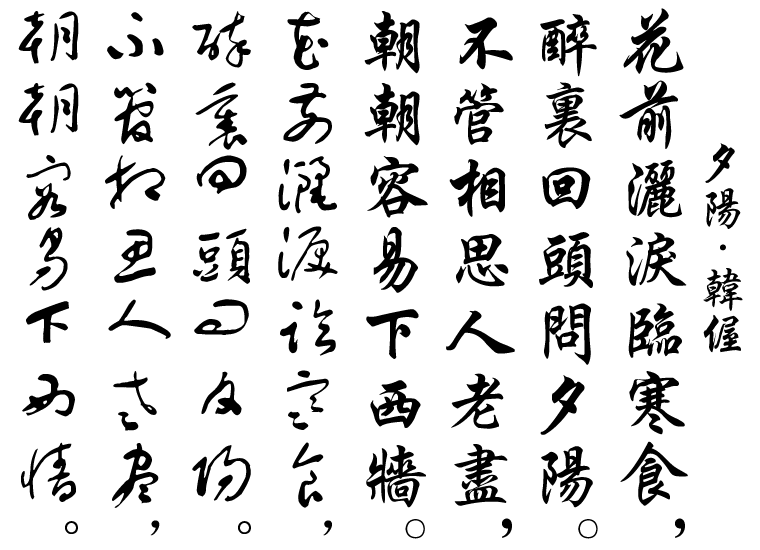 夕陽·韓偓
花前灑淚臨寒食，
醉裏回頭問夕陽。
不管相思人老盡，
朝朝容易下西牆。
花前灑淚臨寒食，
醉裏回頭問夕陽。
不管相思人老盡，
朝朝容易下西牆。